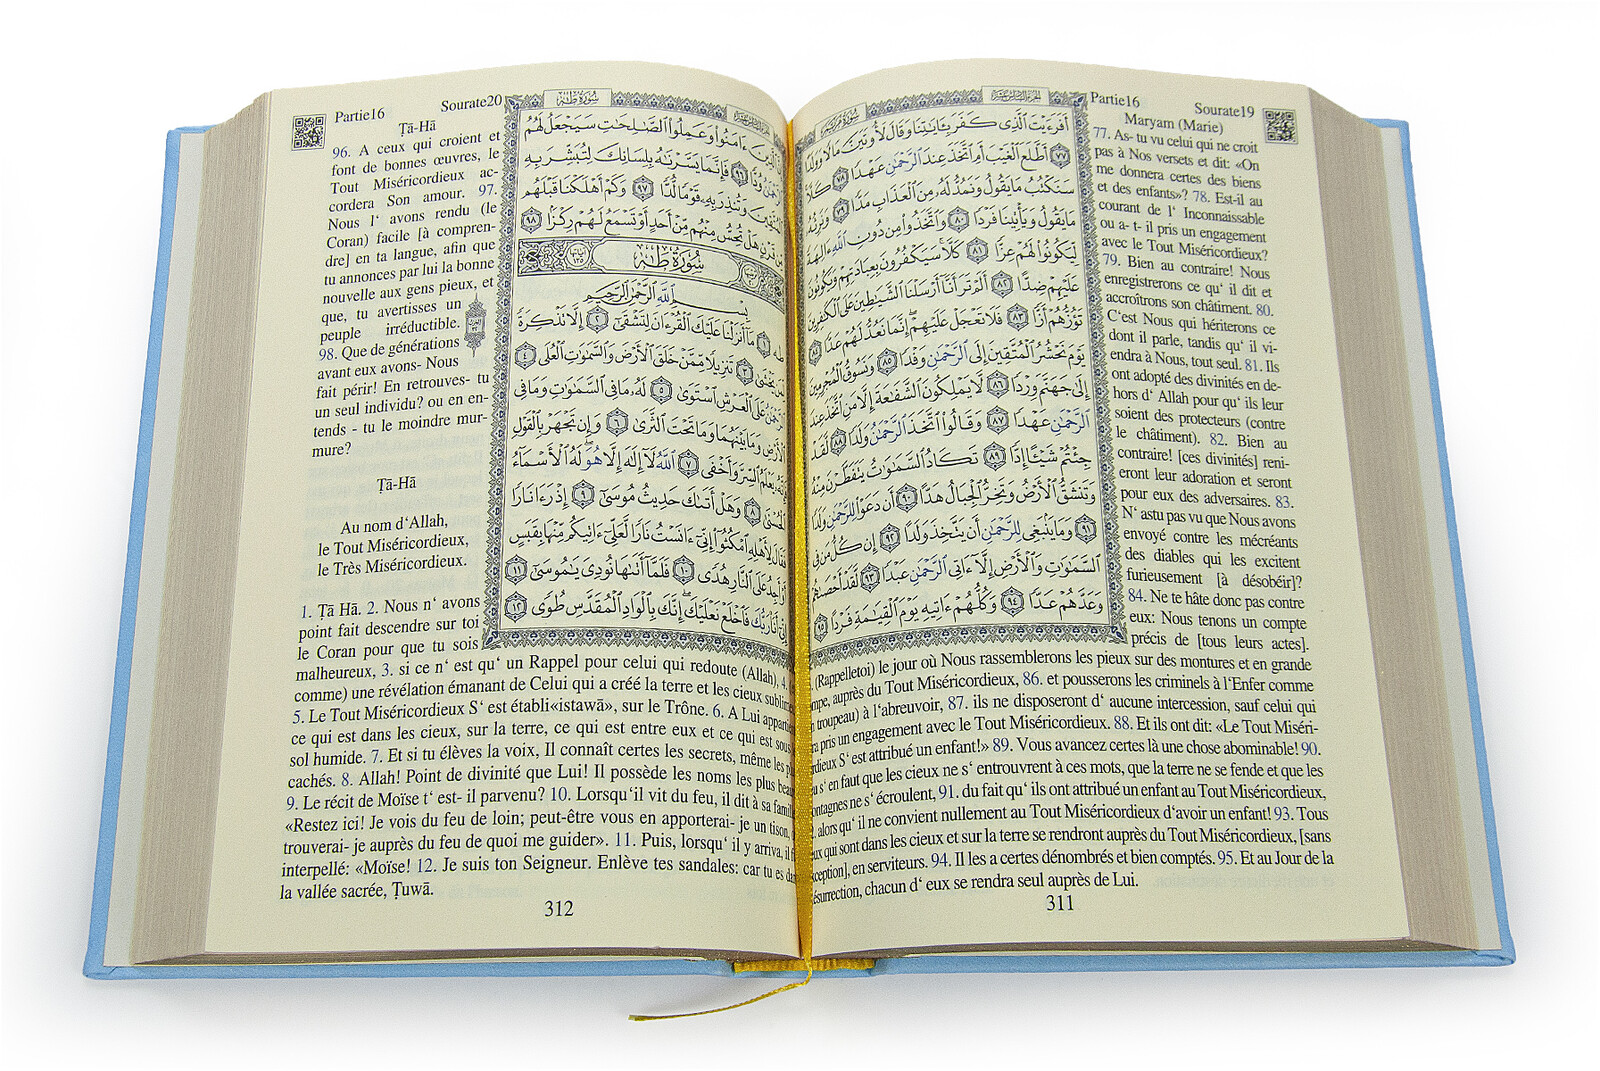 Partie16
Sourate19
الجزء السادس عشر
سورة مريم
أَفَرَءَيْتَ ٱلَّذِى كَفَرَ بِـَٔايَـٰتِنَا وَقَالَ لَأُوتَيَنَّ مَالًا وَوَلَدًا
٧٧ أَطَّلَعَ ٱلْغَيْبَ أَمِ ٱتَّخَذَ عِندَ ٱلرَّحْمَـٰنِ عَهْدًا ٧٨ كَلَّا
سَنَكْتُبُ مَا يَقُولُ وَنَمُدُّ لَهُۥ مِنَ ٱلْعَذَابِ مَدًّا ٧٩ وَنَرِثُهُۥ
مَا يَقُولُ وَيَأْتِينَا فَرْدًا ٨٠ وَٱتَّخَذُوا۟ مِن دُونِ ٱللَّهِ ءَالِهَةً
لِّيَكُونُوا۟ لَهُمْ عِزًّا ٨١ كَلَّا سَيَكْفُرُونَ بِعِبَادَتِهِمْ وَيَكُونُونَ
عَلَيْهِمْ ضِدًّا ٨٢ أَلَمْ تَرَ أَنَّآ أَرْسَلْنَا ٱلشَّيَـٰطِينَ عَلَى ٱلْكَـٰفِرِينَ
تَؤُزُّهُمْ أَزًّا ٨٣ فَلَا تَعْجَلْ عَلَيْهِمْ إِنَّمَا نَعُدُّ لَهُمْ عَدًّا ٨٤
يَوْمَ نَحْشُرُ ٱلْمُتَّقِينَ إِلَى ٱلرَّحْمَـٰنِ وَفْدًا ٨٥ وَنَسُوقُ ٱلْمُجْرِمِينَ
إِلَىٰ جَهَنَّمَ وِرْدًا ٨٦ لَّا يَمْلِكُونَ ٱلشَّفَـٰعَةَ إِلَّا مَنِ ٱتَّخَذَ عِندَ
ٱلرَّحْمَـٰنِ عَهْدًا ٨٧ وَقَالُوا۟ ٱتَّخَذَ ٱلرَّحْمَـٰنُ وَلَدًا ٨٨ لَّقَدْ
جِئْتُمْ شَيْـًٔا إِدًّا ٨٩ تَكَادُ ٱلسَّمَـٰوَٰتُ يَتَفَطَّرْنَ مِنْهُ
وَتَنشَقُّ ٱلْأَرْضُ وَتَخِرُّ ٱلْجِبَالُ هَدًّا ٩٠ أَن دَعَوْا۟ لِلرَّحْمَـٰنِ وَلَدًا
٩١ وَمَا يَنۢبَغِى لِلرَّحْمَـٰنِ أَن يَتَّخِذَ وَلَدًا ٩٢ إِن كُلُّ مَن فِى
ٱلسَّمَـٰوَٰتِ وَٱلْأَرْضِ إِلَّآ ءَاتِى ٱلرَّحْمَـٰنِ عَبْدًا ٩٣ لَّقَدْ أَحْصَىٰهُمْ
وَعَدَّهُمْ عَدًّا ٩٤ وَكُلُّهُمْ ءَاتِيهِ يَوْمَ ٱلْقِيَـٰمَةِ فَرْدًا ٩٥
Maryam (Marie)
77. As- tu vu celui qui ne croit
pas à Nos versets et dit: «On
me donnera certes des biens
et des enfants»? 78. Est-il au
courant de l‘ Inconnaissable
ou a- t- il pris un engagement
avec le Tout Miséricordieux?
79. Bien au contraire! Nous
enregistrerons ce qu‘ il dit et
accroîtrons son châtiment. 80.
C‘est Nous qui hériterons ce
dont il parle, tandis qu‘ il vi-
endra à Nous, tout seul. 81. Ils
ont adopté des divinités en de-
hors d‘ Allah pour qu‘ ils leur
soient des protecteurs (contre
le châtiment). 82. Bien au
contraire! [ces divinités] reni-
eront leur adoration et seront
pour eux des adversaires. 83.
N‘ astu pas vu que Nous avons
envoyé contre les mécréants
des diables qui les excitent
furieusement [à désobéir]?
84. Ne te hâte donc pas contre
eux: Nous tenons un compte
précis de [tous leurs actes].
(Rappelletoi) le jour où Nous rassemblerons les pieux sur des montures et en grande
mpe, auprès du Tout Miséricordieux, 86. et pousserons les criminels à l‘Enfer comme
n troupeau) à l‘abreuvoir, 87. ils ne disposeront d‘ aucune intercession, sauf celui qui
ra pris un engagement avec le Tout Miséricordieux. 88. Et ils ont dit: «Le Tout Miséri-
rdieux S‘ est attribué un enfant!» 89. Vous avancez certes là une chose abominable! 90.
u s‘ en faut que les cieux ne s‘ entrouvrent à ces mots, que la terre ne se fende et que les
ontagnes ne s‘ écroulent, 91. du fait qu‘ ils ont attribué un enfant au Tout Miséricordieux,
. alors qu‘ il ne convient nullement au Tout Miséricordieux d‘avoir un enfant! 93. Tous
ux qui sont dans les cieux et sur la terre se rendront auprès du Tout Miséricordieux, [sans
xception], en serviteurs. 94. Il les a certes dénombrés et bien comptés. 95. Et au Jour de la
ésurrection, chacun d‘ eux se rendra seul auprès de Lui.
311
Partie16
Sourate20
سورة طه
الجزء السادس عشر
ٱلَّذِينَ ءَامَنُوا۟ وَعَمِلُوا۟ ٱلصَّـٰلِحَـٰتِ سَيَجْعَلُ لَهُمُ
ٱلرَّحْمَـٰنُ وُدًّا ٩٦ فَإِنَّمَا يَسَّرْنَـٰهُ بِلِسَانِكَ لِتُبَشِّرَ بِهِ
ٱلْمُتَّقِينَ وَتُنذِرَ بِهِۦ قَوْمًا لُّدًّا ٩٧ وَكَمْ أَهْلَكْنَا قَبْلَهُم
مِّن قَرْنٍ هَلْ تُحِسُّ مِنْهُم مِّنْ أَحَدٍ أَوْ تَسْمَعُ لَهُمْ رِكْزًۢا ٩٨
سُورَةُ طه
بِسْمِ ٱللَّهِ ٱلرَّحْمَـٰنِ ٱلرَّحِيمِ
طه ١ مَآ أَنزَلْنَا عَلَيْكَ ٱلْقُرْءَانَ لِتَشْقَىٰٓ ٢ إِلَّا تَذْكِرَةً
لِّمَن يَخْشَىٰ ٣ تَنزِيلًا مِّمَّنْ خَلَقَ ٱلْأَرْضَ وَٱلسَّمَـٰوَٰتِ ٱلْعُلَى ٤
ٱلرَّحْمَـٰنُ عَلَى ٱلْعَرْشِ ٱسْتَوَىٰ ٥ لَهُۥ مَا فِى ٱلسَّمَـٰوَٰتِ وَمَا فِى
ٱلْأَرْضِ وَمَا بَيْنَهُمَا وَمَا تَحْتَ ٱلثَّرَىٰ ٦ وَإِن تَجْهَرْ بِٱلْقَوْلِ
فَإِنَّهُۥ يَعْلَمُ ٱلسِّرَّ وَأَخْفَى ٧ ٱللَّهُ لَآ إِلَـٰهَ إِلَّا هُوَ لَهُ ٱلْأَسْمَآءُ
ٱلْحُسْنَىٰ ٨ وَهَلْ أَتَىٰكَ حَدِيثُ مُوسَىٰٓ ٩ إِذْ رَءَا نَارًا
فَقَالَ لِأَهْلِهِ ٱمْكُثُوٓا۟ إِنِّىٓ ءَانَسْتُ نَارًا لَّعَلِّىٓ ءَاتِيكُم مِّنْهَا بِقَبَسٍ
أَوْ أَجِدُ عَلَى ٱلنَّارِ هُدًى ١٠ فَلَمَّآ أَتَىٰهَا نُودِىَ يَـٰمُوسَىٰٓ ١١
إِنِّىٓ أَنَا۠ رَبُّكَ فَٱخْلَعْ نَعْلَيْكَ إِنَّكَ بِٱلْوَادِ ٱلْمُقَدَّسِ طُوًى ١٢
Ṭā-Hā
96. A ceux qui croient et
font de bonnes œuvres, le
Tout Miséricordieux ac-
cordera Son amour. 97.
Nous l‘ avons rendu (le
Coran) facile [à compren-
dre] en ta langue, afin que
tu annonces par lui la bonne
nouvelle aux gens pieux, et
que, tu avertisses un
peuple irréductible.
98. Que de générations
avant eux avons- Nous
fait périr! En retrouves- tu
un seul individu? ou en en-
tends - tu le moindre mur-
mure?
Ṭā-Hā
Au nom d‘Allah,
le Tout Miséricordieux,
le Très Miséricordieux.
1. Ṭā Hā. 2. Nous n‘ avons
point fait descendre sur toi
le Coran pour que tu sois
malheureux, 3. si ce n‘ est qu‘ un Rappel pour celui qui redoute (Allah), 4.
comme) une révélation émanant de Celui qui a créé la terre et les cieux sublime
5. Le Tout Miséricordieux S‘ est établi«istawā», sur le Trône. 6. A Lui appartie
ce qui est dans les cieux, sur la terre, ce qui est entre eux et ce qui est sous
sol humide. 7. Et si tu élèves la voix, Il connaît certes les secrets, même les pl
cachés. 8. Allah! Point de divinité que Lui! Il possède les noms les plus beau
9. Le récit de Moïse t‘ est- il parvenu? 10. Lorsqu‘il vit du feu, il dit à sa famil
«Restez ici! Je vois du feu de loin; peut-être vous en apporterai- je un tison,
trouverai- je auprès du feu de quoi me guider». 11. Puis, lorsqu‘ il y arriva, il f
interpellé: «Moïse! 12. Je suis ton Seigneur. Enlève tes sandales: car tu es da
la vallée sacrée, Ṭuwā.
312